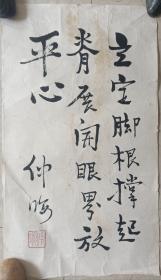 立定脚根撑起
脊展开眼界放
平心
仲晦